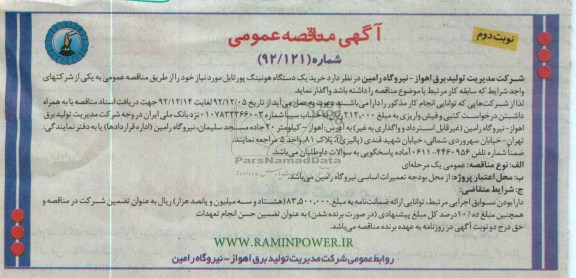 نوبت دوم
آگهی مناقصه عمومی
شماره (۹۲/۱۲۱)
شرکت مدیریت تولید برق اهواز - نیروگاه رامین در نظر دارد خرید یک دستگاه هونینگ پورتابل مورد نیاز خود را از طریق مناقصه عمومی به یکی از شرکتهای
واجد شرایط که سابقه کار مرتبط با موضوع مناقصه را داشته باشد واگذار نماید.
لذا از شرکت‌هایی که توانایی انجام کار مذکور را دارا می‌باشند، دعوت به عمل می‌آید از تاریخ ۹۲/۱۲/۰۵ لغایت ۹۲/۱۲/۱۴ جهت دریافت اسناد مناقصه با به همراه
داشتن درخواست کتبی و فیش واریزی به مبلغ ۲۱۲,۰۰۰ حساب سیبا شماره ۰۱۰۷۸۳۳۳۶۶۰۰۲ نزد بانک ملی ایران در وجه شرکت مدیریت تولید برق
اهواز - نیروگاه رامین (غیرقابل استرداد و واگذاری به غیر) به آدرس: اهواز - کیلومتر ۲۰ جاده مسجد سلیمان، نیروگاه رامین (اداره قراردادها) یا به دفتر نمایندگی:
تهران - خیابان سهروردی شمالی، خیابان شهید قندی (پالیزی)، پلاک ۸۱، واحد ۵ مراجعه نمایند.
ضمنا شماره تلفن ۴۴۶۰۹۵۶-۰۶۱۱ آماده پاسخگویی به سوالات داوطلبان می‌باشد.
الف: نوع مناقصه: عمومی یک مرحله‌ای
ب: محل اعتبار پروژه: از محل بودجه تعمیرات اساسی نیروگاه رامین می‌باشد.
ج: شرایط متقاضی:
دارا بودن سوابق اجرایی مرتبط، توانایی ارائه ضمانت‌نامه به مبلغ ۸۳,۵۰۰,۰۰۰ (هشتاد و سه میلیون و پانصد هزار) ریال به عنوان تضمین شرکت در مناقصه و
همچنین مبلغ ده / ۱۰ درصد کل مبلغ پیشنهادی (در صورت برنده شدن) به عنوان تضمین حسن انجام تعهدات
حق درج دو نوبت آگهی در روزنامه به عهده برنده مناقصه می‌باشد.
WWW.RAMINPOWER.IR
روابط عمومی شرکت مدیریت تولید برق اهواز - نیروگاه رامین
ParsNamadData